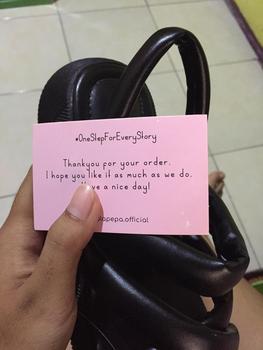 #OneStepForEveryStory
Thankyou for your order.
I hope you like it as much as we do.
a nice day!